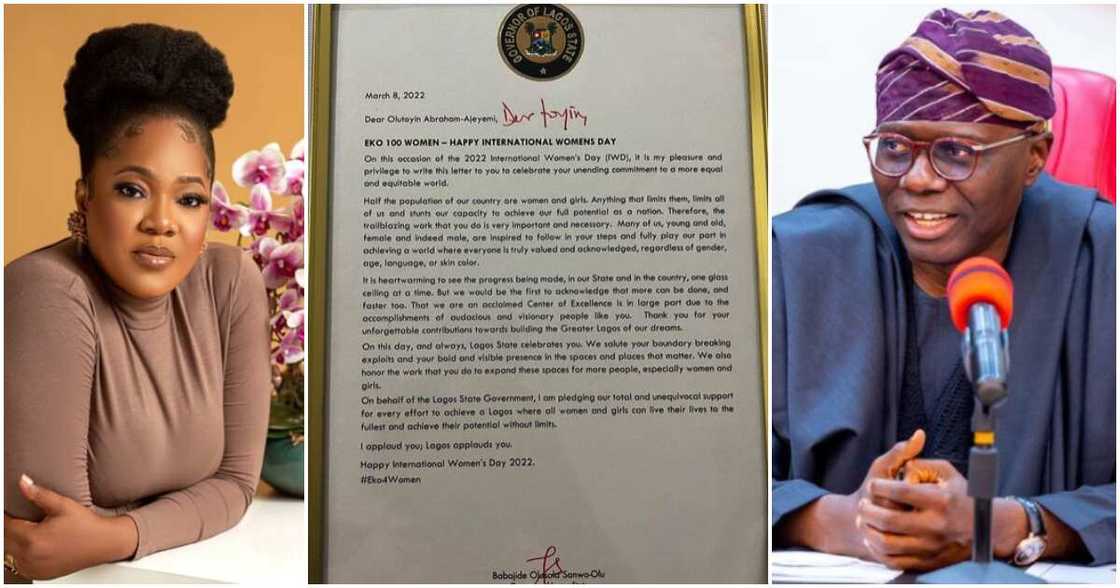 GOVERNOR OF LAGOS STATE
March 8, 2022
Dear Olutoyin Abraham-Ajeyemi, Dear toyin,
EKO 100 WOMEN – HAPPY INTERNATIONAL WOMENS DAY
On this occasion of the 2022 International Women's Day (IWD), it is my pleasure and
privilege to write this letter to you to celebrate your unending commitment to a more equal
and equitable world.
Half the population of our country are women and girls. Anything that limits them, limits all
of us and stunts our capacity to achieve our full potential as a nation. Therefore, the
trailblazing work that you do is very important and necessary. Many of us, young and old,
female and indeed male, are inspired to follow in your steps and fully play our part in
achieving a world where everyone is truly valued and acknowledged, regardless of gender,
age, language, or skin color.
It is heartwarming to see the progress being made, in our State and in the country, one glass
ceiling at a time. But we would be the first to acknowledge that more can be done, and
faster too. That we are an acclaimed Center of Excellence is in large part due to the
accomplishments of audacious and visionary people like you. Thank you for your
unforgettable contributions towards building the Greater Lagos of our dreams.
On this day, and always, Lagos State celebrates you. We salute your boundary breaking
exploits and your bold and visible presence in the spaces and places that matter. We also
honor the work that you do to expand these spaces for more people, especially women and
girls.
On behalf of the Lagos State Government, I am pledging our total and unequivocal support
for every effort to achieve a Lagos where all women and girls can live their lives to the
fullest and achieve their potential without limits.
I applaud you; Lagos applauds you.
Happy International Women's Day 2022.
#Eko4Women
Babajide Olusola Sanwo-Olu